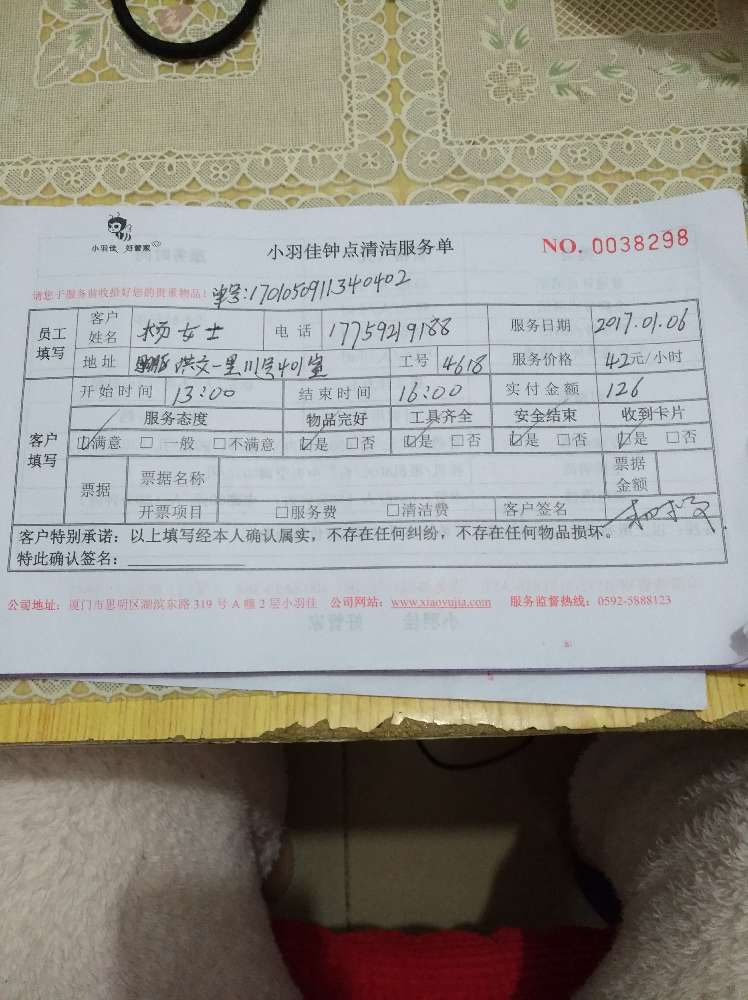 小羽佳 好管家
小羽佳钟点清洁服务单
NO. 0038298
请您于服务前收拾好您的贵重物品！ 单号:1701050911340402
员工填写 客户姓名 杨女士 电话 17759219188 服务日期 2017.01.06
地址 洪文一里111号401室 工号 4618 服务价格 42元/小时
客户填写 开始时间 13:00 结束时间 16:00 实付金额 126
服务态度 物品完好 工具齐全 安全结束 收到卡片
☑满意 □一般 □不满意 ☑是 □否 ☑是 □否 ☑是 □否 ☑是 □否
票据 票据名称 票据金额
开票项目 □服务费 □清洁费 客户签名
客户特别承诺：以上填写经本人确认属实，不存在任何纠纷，不存在任何物品损坏。
特此确认签名：
公司地址：厦门市思明区湖滨东路 319 号 A 幢 2 层小羽佳 公司网站：www.xiaoyujia.com 服务监督热线：0592-5888123